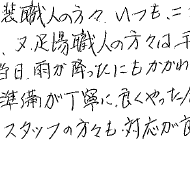 装職人の方々、いつも、こ
、又、足場職人の方々は、手
当日、雨が降ったにもかかわ
準備が丁寧に、良くやったん
スタッフの方々も、対応が良